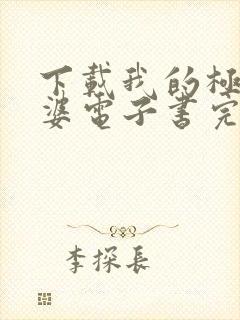 下載我的極
婆電子書完
李探長